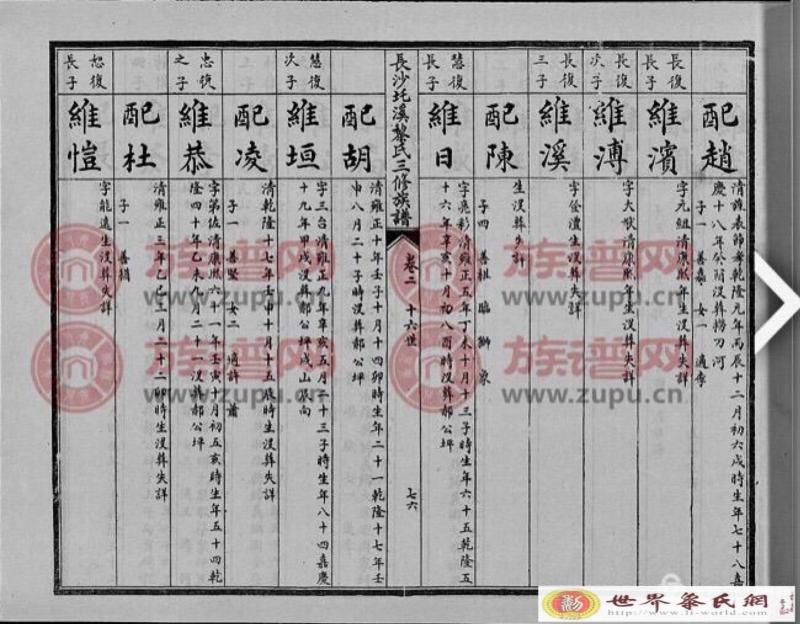 配趙
清旌表節孝乾隆元年丙辰十二月初六戌時生年七十八嘉
慶十八年癸酉沒葬撈刀河
子一 善嘉 女一 適李
長復
長子
維濱
字元組清康熙年生沒葬失詳
長復
次子
維溥
字大猷清康熙年生沒葬失詳
長復
三子
維溪
字俊澧生沒葬失詳
配陳
生沒葬失詳
子四 善祖 臨 獅 象
慧復
長子
維日
字亮彩清雍正五年丁未十月十三子時生年六十五乾隆五
十六年辛亥十月初八酉時沒葬郝公坪
長沙圫溪黎氏三修族譜
卷二 十六世
七六
配胡
清雍正十年壬子十月十四卯時生年二十一乾隆十七年壬
申八月二十子時沒葬郝公坪
慧復
次子
維垣
字三台清雍正九年辛亥五月二十三子時生年八十四嘉慶
十九年甲戌沒葬郝公坪戌山辰向
配凌
清乾隆十七年壬申十月十五辰時生沒葬失詳
子一 善堅 女二 適許 蕭
忠復
之子
維恭
字第佐清康熙六十一年壬寅十月初五亥時生年五十四乾
隆四十年乙未九月二十一沒葬郝公坪
配杜
清雍正三年乙巳二月二十二卯時生沒葬失詳
子一 善猖
恕復
長子
維愷
字能遠生沒葬失詳
族谱网
www.zupu.cn
族谱网
www.zupu.cn
族谱网
www.zupu.cn
族谱网
www.zupu.cn
世界黎氏網
http://www.li-world.com